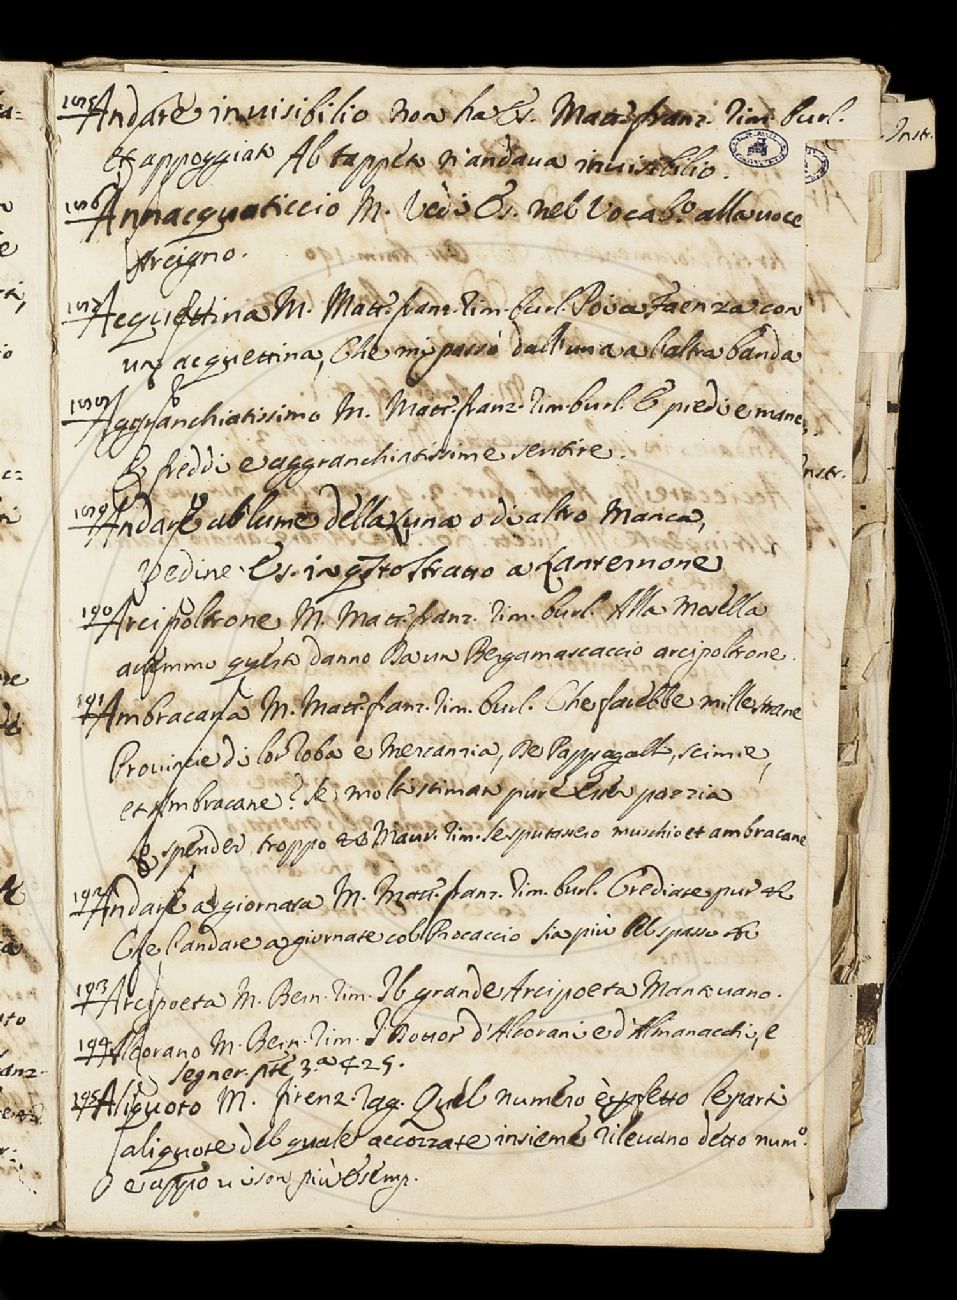 185 Andare in visibilio non ha Es. Matt. franz. rim. burl.
Et appoggiato Al tappeto n'andava invisibilio.
186 Annacquaticcio M. Vedi Es. nel Vocab.º alla voce
Arcigno.
187 Acquettina M. Matt. franz. rim. burl. Poi a Faenza con
un' acquettina, Che mi passò dall'una a l'altra banda
188 Aggranchiatissimo M. Matt. franz. rim. burl. E piedi e mane
E freddi e aggranchiatissime sentire.
189 Andare al lume della Luna o di altro Manca,
Vedine Es. in q.to stratto a Lanternone
190 Arcipoltrone M. Matt. franz. rim. burl. Alla Mosella
avemmo questo danno Da un Bergamascaccio arcipoltrone.
191 Ambracana M. Matt. franz. rim. burl. Che farebbe mille strane
Provincie di lor Roba e Mercanzia, De Pappagalli, scimie,
et Ambracane? Se, molti stiman pure pazzia
E spender troppo &c Maur. rim. Se sputassero muschio et ambracane
192 Andare a giornata M. Matt. franz. rim. burl. Crediate pur &c
Che l'andare a giornate col Procaccio Sia più bel spasso &c
193 Arcipoeta M. Bern. rim. Il grande Arcipoeta Mantuano.
194 Alcorano M. Bern. rim. D'Alcorani e d'Almanacchi, e
Segner. pte 3.ª 425.
195 Aliquoto M. firenz. rag. Quel numero è perfetto le parti
aliquote del quale accozzate insieme rilevano detto num.º
e appo vi son più Esemp.
Instr.
Instr.